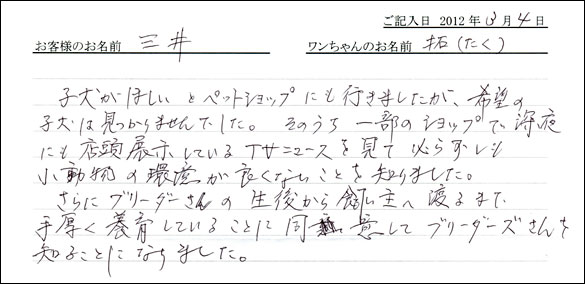 ご記入日 2012年 3月 4日
お客様のお名前 三井 ワンちゃんのお名前 拓(たく)
子犬がほしい とペットショップにも行きましたが、希望の
子犬は見つかりませんでした。そのうち 一部のショップで、深夜
にも店頭展示している ニュースを見て 必らずしも
小動物の環境が良くないことを知りました。
さらに ブリーダーさんの 生後から飼い主へ 渡るまで
手厚く養育していることに 同意して ブリーダーズさんを
知ることになりました。